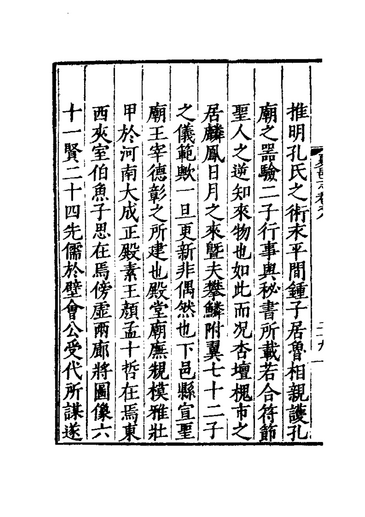 推明孔氏之術永平間鍾子居魯相親護孔
廟之器驗二子行事與秘書所載若合符節
聖人之逆知來物也如此而况杏壇槐市之
居麟鳳日月之來暨夫攀鱗附翼七十二子
之儀範歟一旦更新非偶然也下邑縣宣聖
廟王宰德彰之所建也殿堂廟廡規模雅壯
甲於河南大成正殿素王顔孟十哲在焉東
西夾室伯魚子思在焉傍虚兩廊將圖像六
十一賢二十四先儒於壁會公受代所謀遂